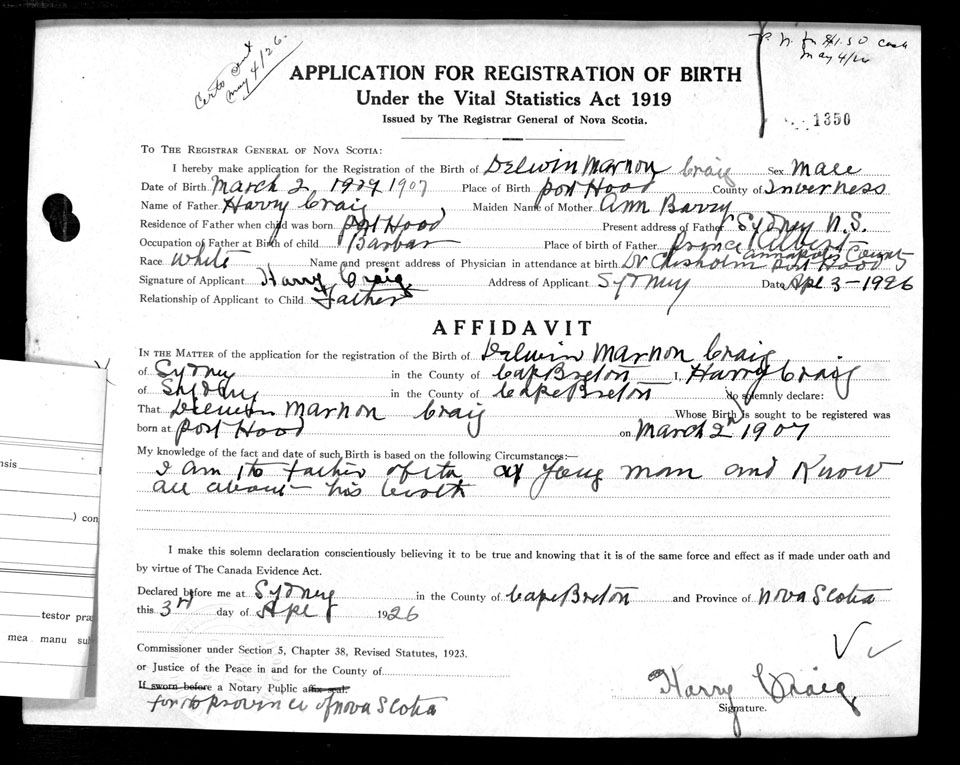 Certo sent
May 4/26.
May 4/26
1350
APPLICATION FOR REGISTRATION OF BIRTH
Under the Vital Statistics Act 1919
Issued by The Registrar General of Nova Scotia.
TO THE REGISTRAR GENERAL OF NOVA SCOTIA:
I hereby make application for the Registration of the Birth of Delwin Marnon Craig Sex Male
Date of Birth March 2, 1907 Place of Birth Port Hood County of Inverness
Name of Father Harry Craig Maiden Name of Mother Ann Barry
Residence of Father when child was born Port Hood Present address of Father Sydney N.S.
Occupation of Father at Birth of child Barbar Place of birth of Father Prince Albert
Annapolis County
Race White Name and present address of Physician in attendance at birth Dr Chisholm Port Hood
Signature of Applicant Harry Craig Address of Applicant Sydney Date Apl 3-1926
Relationship of Applicant to Child Father
AFFIDAVIT
IN THE MATTER of the application for the registration of the Birth of Delwin Marnon Craig
of Sydney in the County of Cape Breton I, Harry Craig
of Sydney in the County of Cape Breton do solemnly declare:
That Delwin Marnon Craig Whose Birth is sought to be registered was
born at Port Hood on March 2nd 1907
My knowledge of the fact and date of such Birth is based on the following Circumstances:—
I am the father of young man and Know
all about his birth
I make this solemn declaration conscientiously believing it to be true and knowing that it is of the same force and effect as if made under oath and
by virtue of The Canada Evidence Act.
Declared before me at Sydney in the County of Cape Breton and Province of Nova Scotia
this 3rd day of Apl 1926
Commissioner under Section 5, Chapter 38, Revised Statutes, 1923.
or Justice of the Peace in and for the County of
If sworn before a Notary Public affix seal.
for the province of Nova Scotia
Harry Craig
Signature.
nsis
) con
testor pra
mea manu su